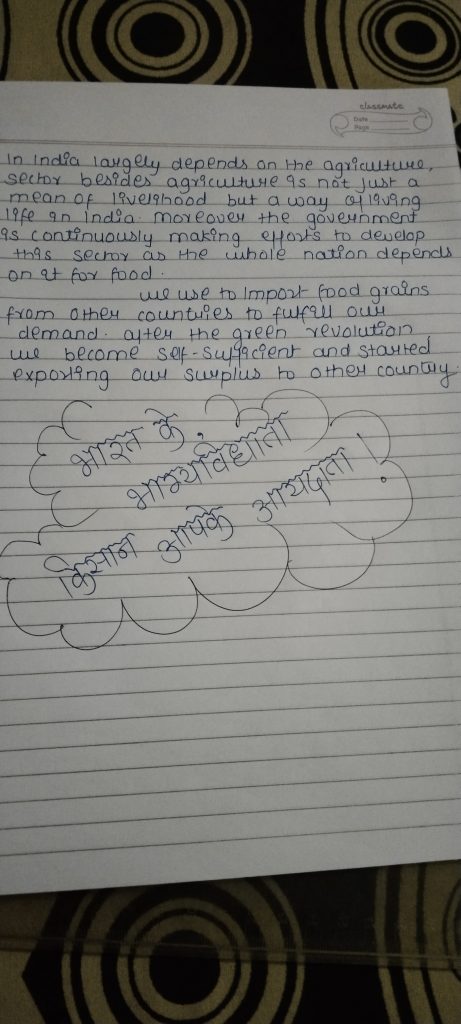 classmate
Date
Page
In India largely depends on the agriculture,
sector besides agriculture is not just a
mean of livelihood but a way of living
life in India. moreover the government
is continuously making efforts to develop
this sector as the whole nation depends
on it for food.
we use to Import food grains
from other countries to fulfall our
demand. after the green revolution
we become self-sufficient and started
exporting our surplus to other country.
भारत के
भाग्यविधाता
किसान आपके आयदाता !